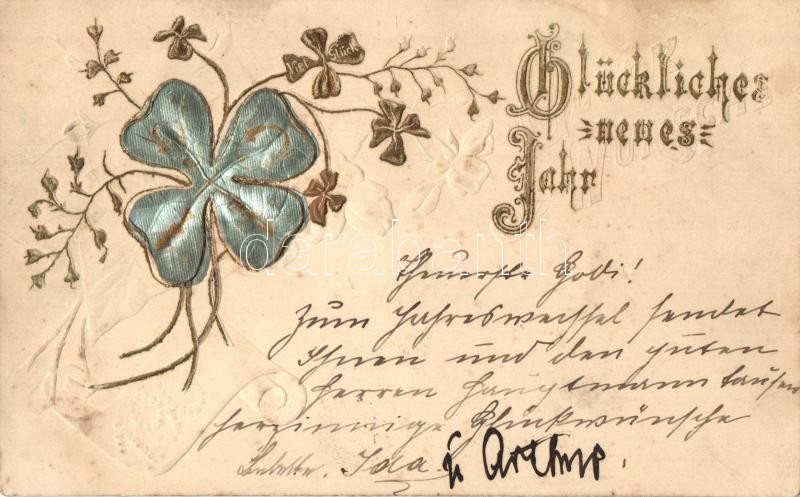 Viel Glück
Glückliches
neues
Jahr
Theuerste Godi!
Zum Jahreswechsel sendet
Ihnen und den guten
Herren Hauptmann tausend
herzinnige Glückwünsche
Babette. Ida u Arthur.
darabanth